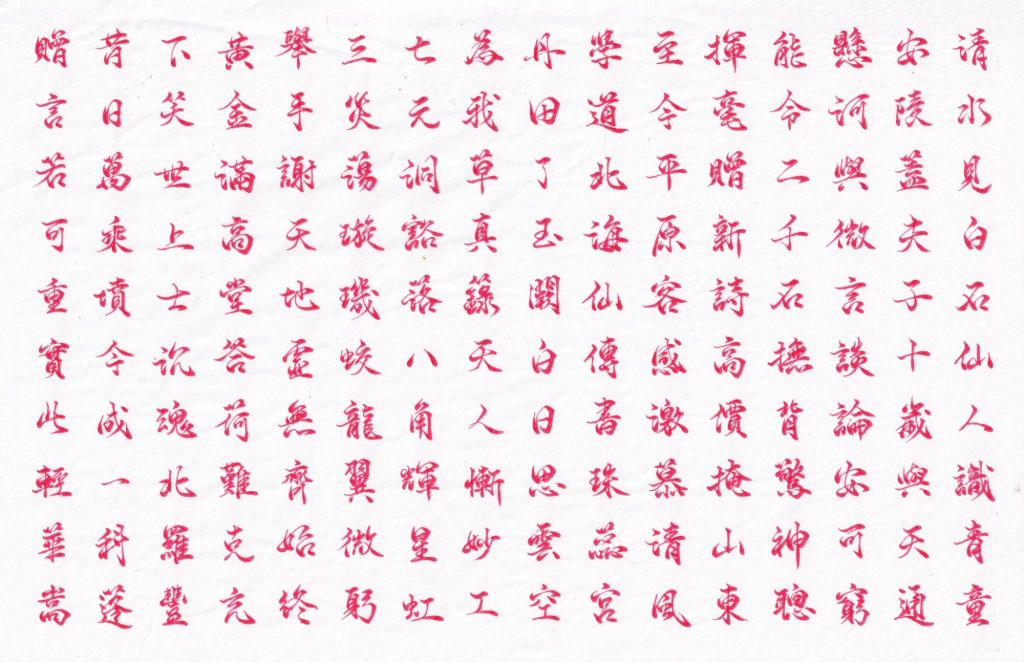 清水見白石仙人識青童
安陵蓋夫子十歲與天通
懸河與微言談論安可窮
能令二千石撫背驚神聰
揮毫贈新詩高價掩山東
至今平原客感激慕清風
學道北海仙傳書蕊珠宮
丹田了玉闕白日思雲空
為我草真籙天人慚妙工
七元洞豁落八角輝星虹
三災蕩璇璣蛟龍翼微躬
舉手謝天地虛無齊始終
黃金滿高堂答荷難克充
下笑世上士沉魂北羅豐
昔日萬乘墳今成一科蓬
贈言若可重實此輕華嵩